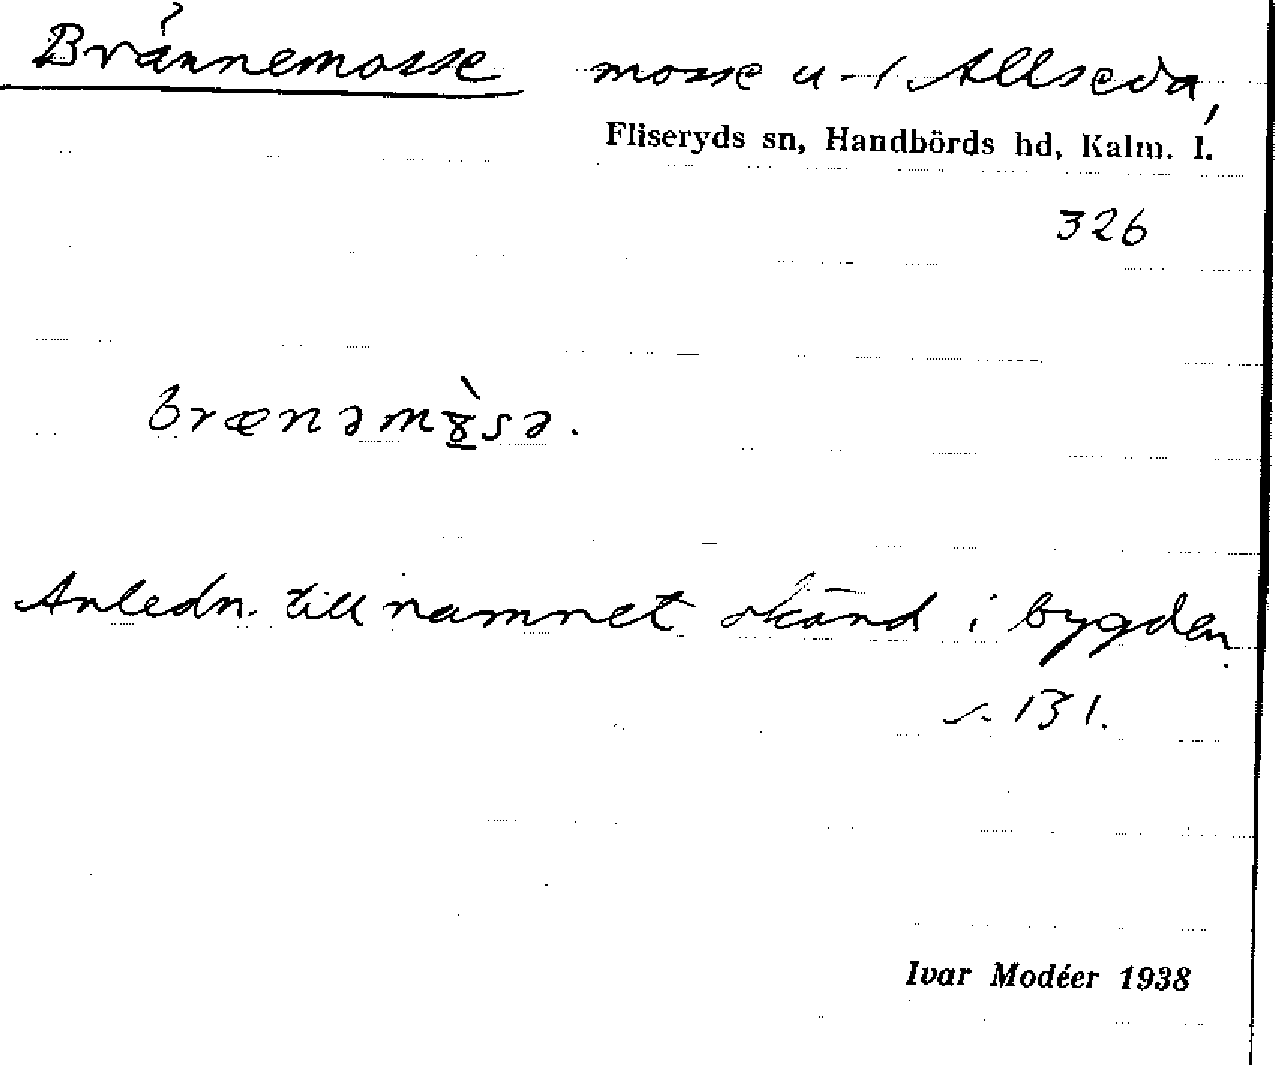 Brännemosse mosse u-/ Allseda,
Fliseryds sn, Handbörds hd, Kalm. l.
326
brænəmɣ̀sə.
Anledn. till namnet okänd i bygden.
s. 131.
Ivar Modéer 1938